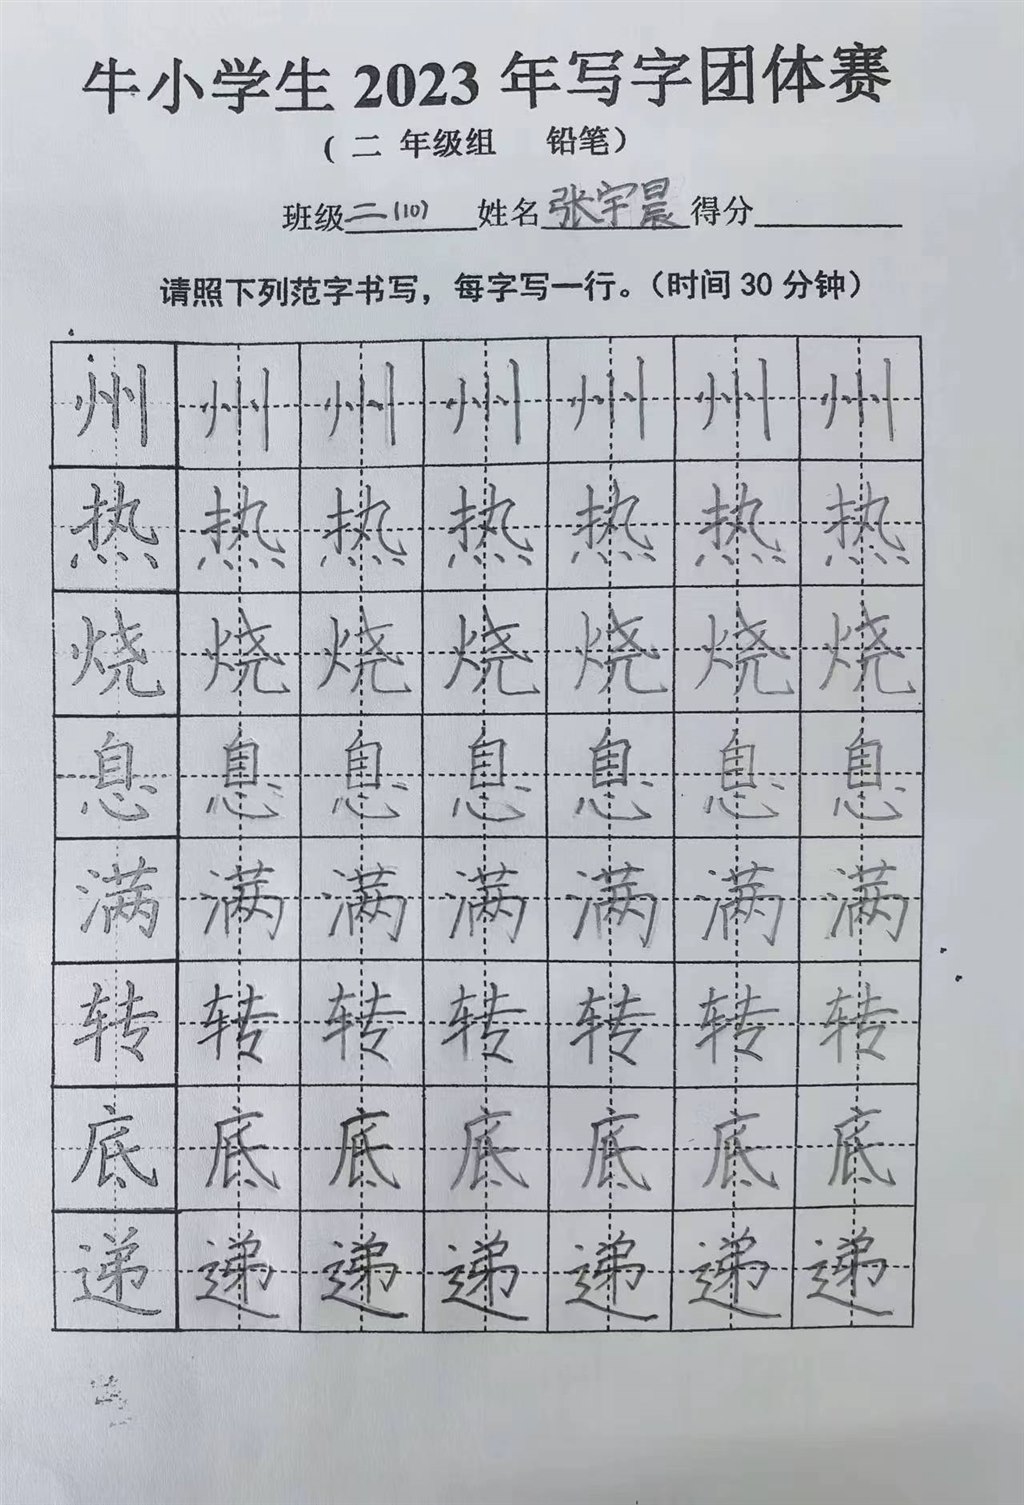 牛小学生 2023 年写字团体赛
( 二 年级组 铅笔）
班级二(10) 姓名张宇晨得分
请照下列范字书写，每字写一行。（时间 30 分钟）
州 州 州 州 州 州 州
热 热 热 热 热 热 热
烧 烧 烧 烧 烧 烧 烧
息 息 息 息 息 息 息
满 满 满 满 满 满 满
转 转 转 转 转 转 转
底 底 底 底 底 底 底
递 递 递 递 递 递 递